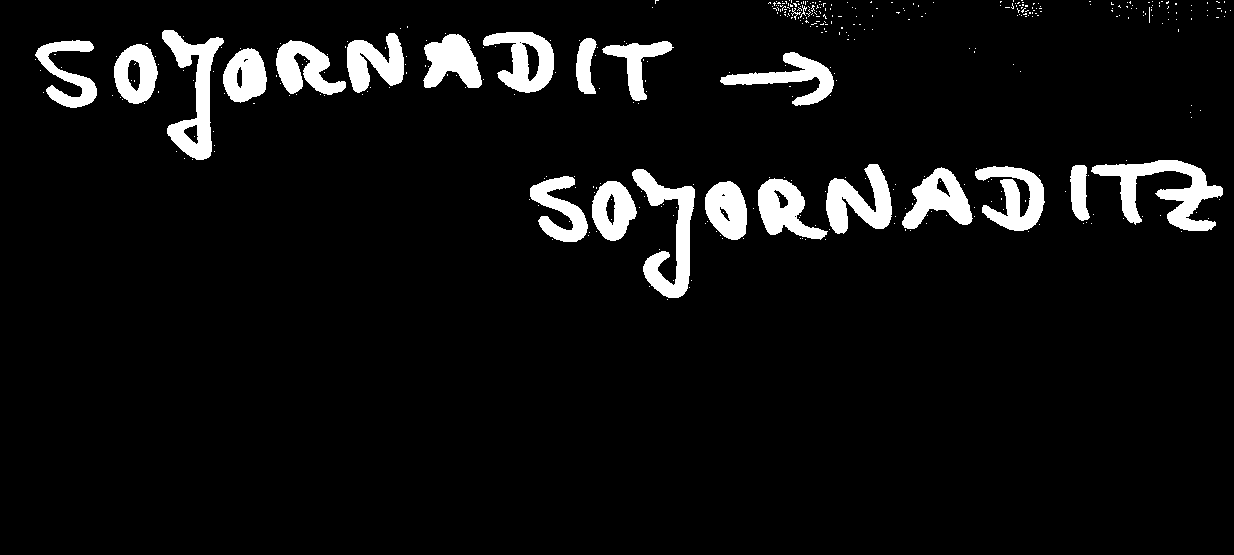 SOJORNADIT →
SOJORNADITZ